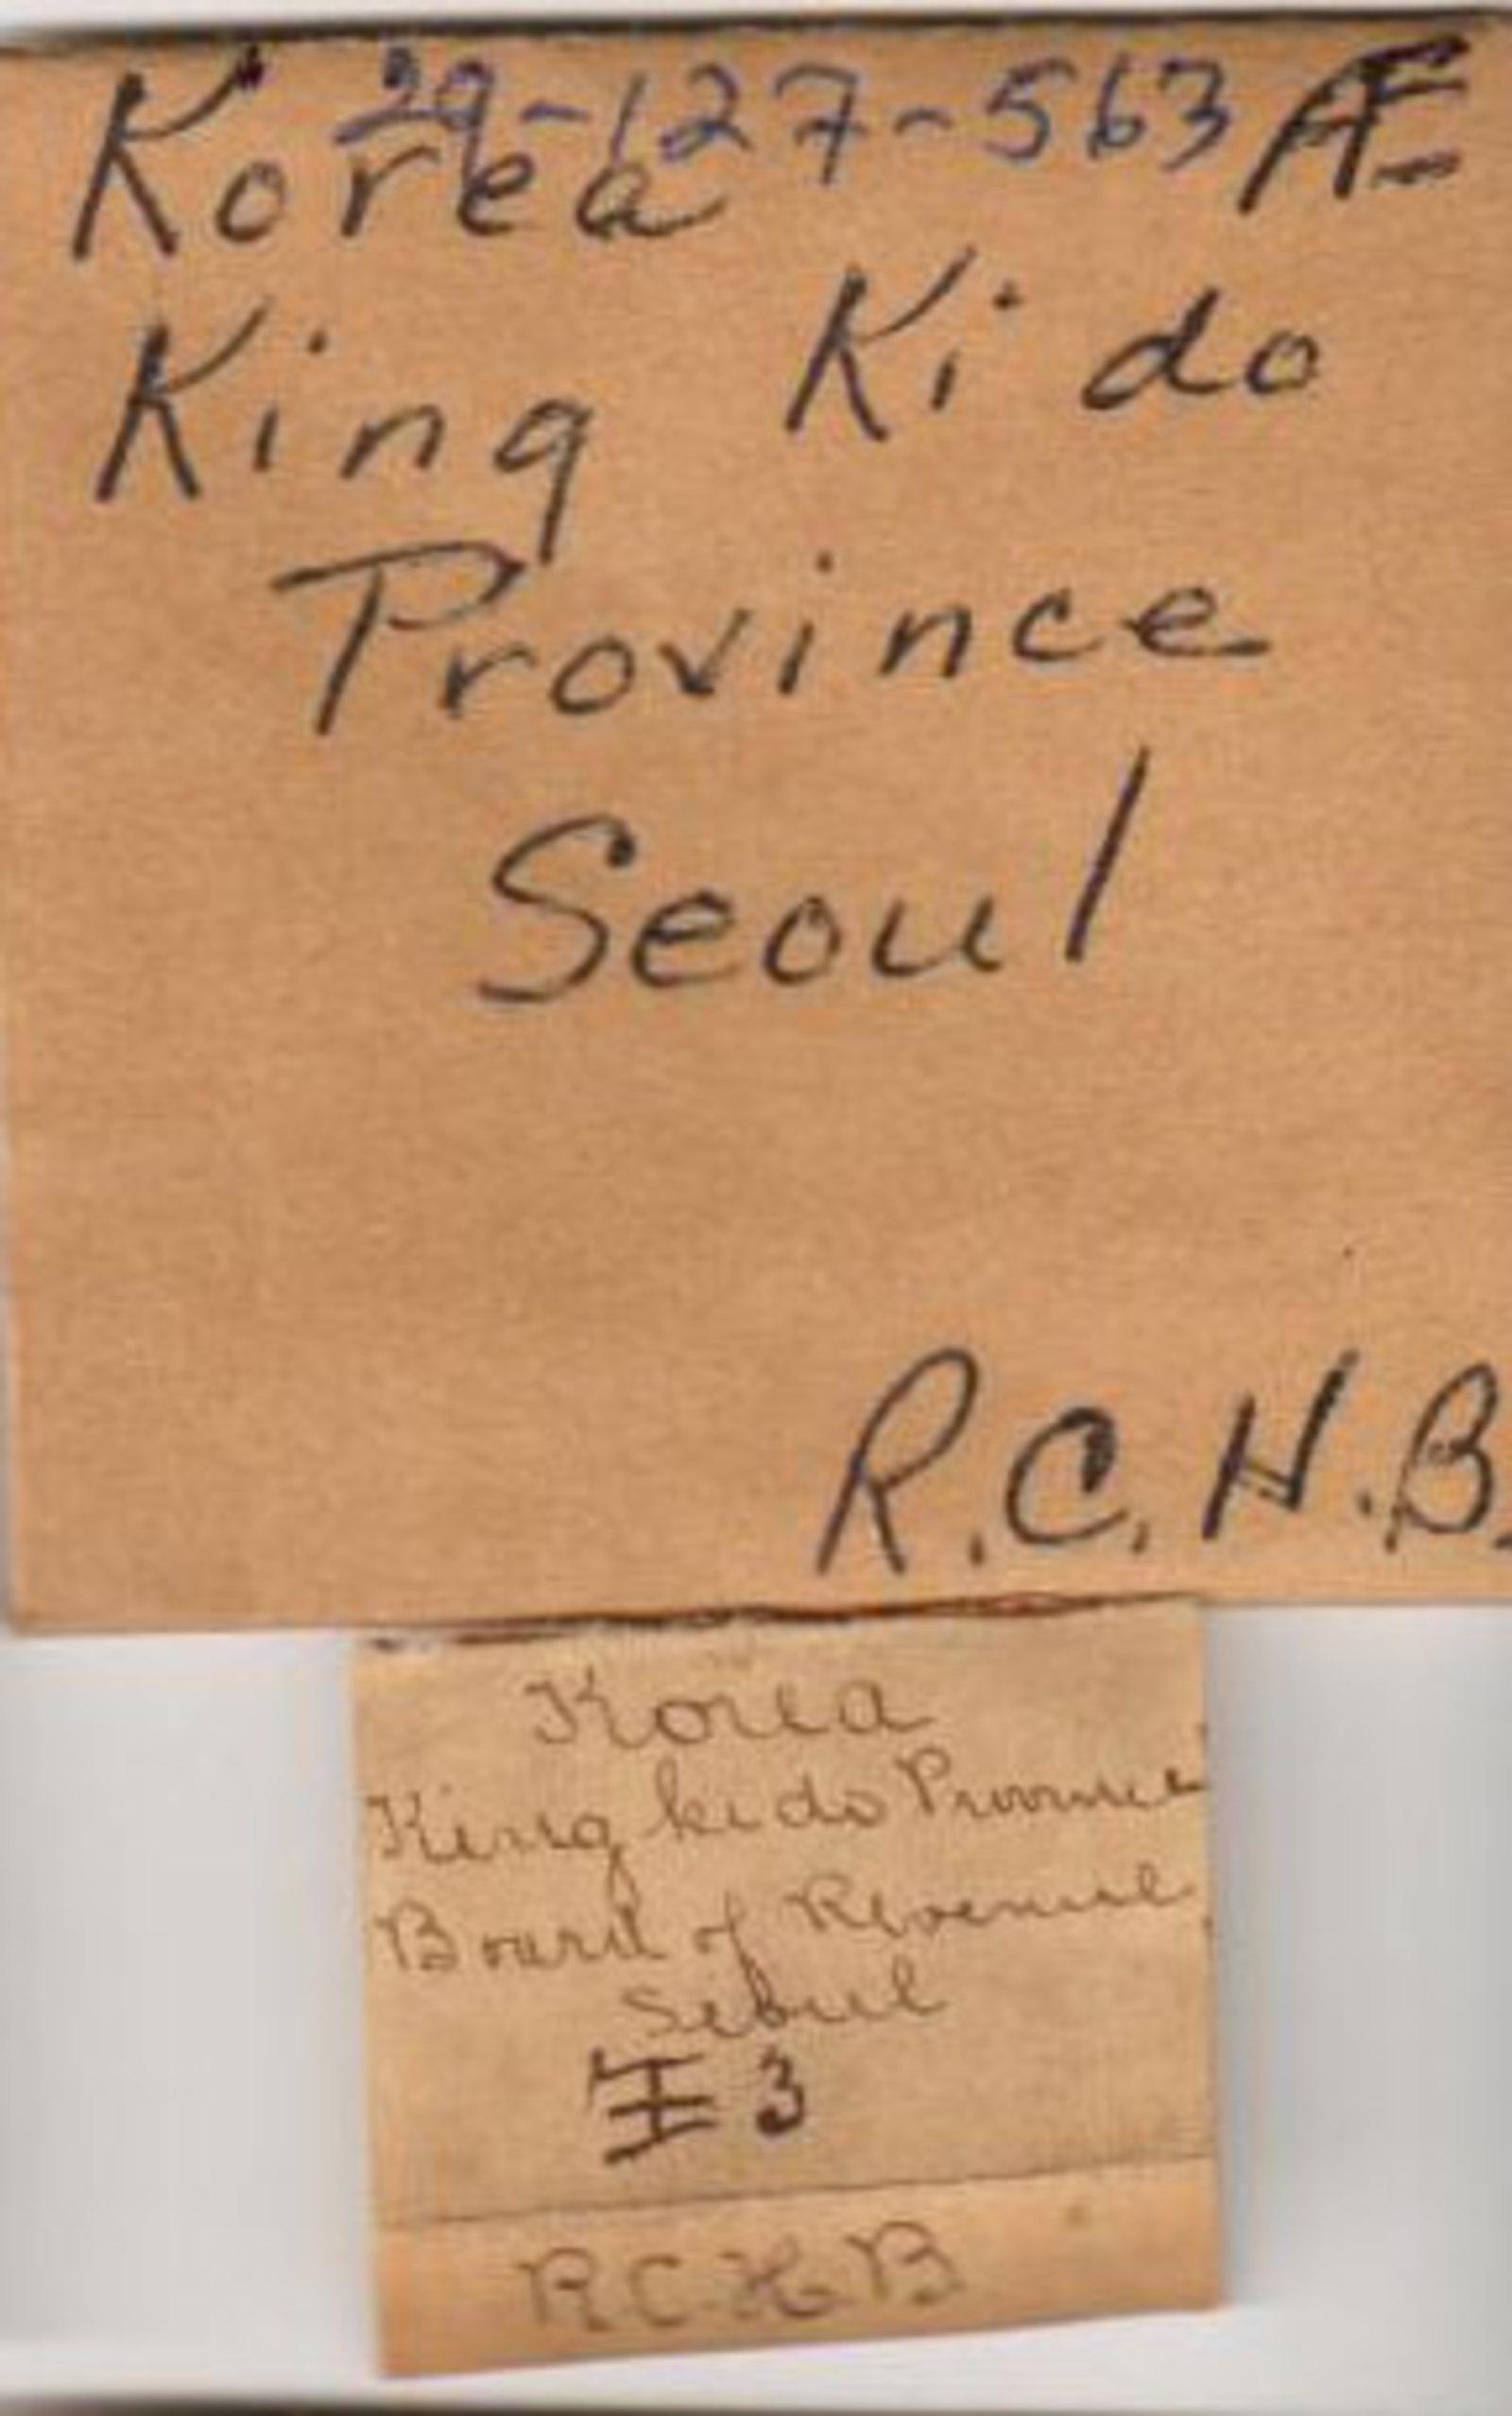 29-127-563 Æ
Korea
King Ki do
Province
Seoul
R.C.H.B.
Korea
King ki do Province
Board of Revenue,
Seoul
3
R C H B